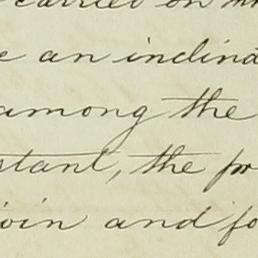 carried on
an inclina
among the
stant, the pr
join and fo